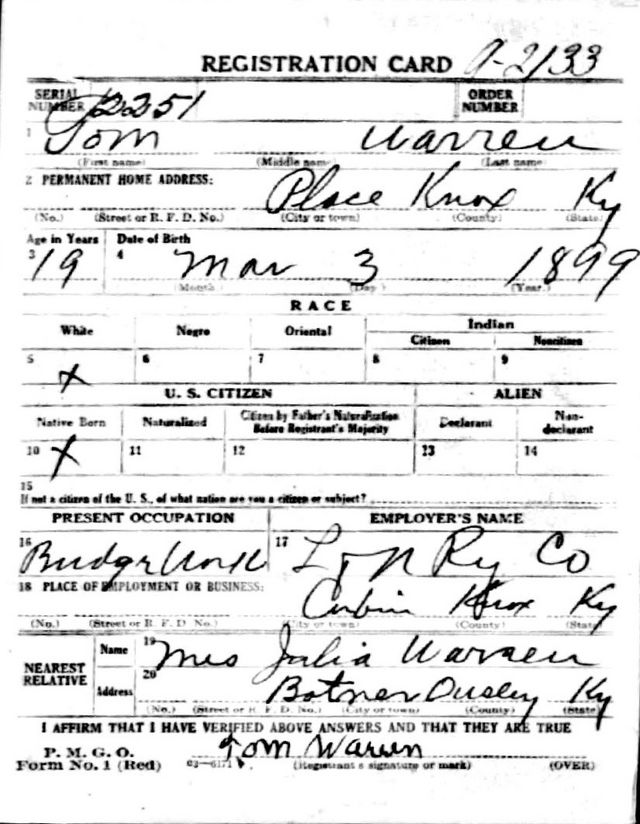 REGISTRATION CARD A-2133
SERIAL NUMBER 2251 ORDER NUMBER
1 Tom Warren
(First name) (Middle name) (Last name)
2 PERMANENT HOME ADDRESS: Place Knox Ky
(No.) (Street or R. F. D. No.) (City or town) (County) (State)
Age in Years Date of Birth
3 19 4 Mar 3 1899
(Month) (Day) (Year)
RACE
White Negro Oriental Indian
Citizen Noncitizen
5 X 6 7 8 9
U. S. CITIZEN ALIEN
Native Born Naturalized Citizen by Father's Naturalization Before Registrant's Majority Declarant Non-declarant
10 X 11 12 13 14
15
If not a citizen of the U. S., of what nation are you a citizen or subject?
PRESENT OCCUPATION EMPLOYER'S NAME
16 Bridge Work 17 L & N Ry Co
18 PLACE OF EMPLOYMENT OR BUSINESS:
Corbin Knox Ky
(No.) (Street or R. F. D. No.) (City or town) (County) (State)
NEAREST RELATIVE Name 19 Mrs Julia Warren
Address 20 Botner Ousley Ky
(No.) (Street or R. F. D. No.) (City or town) (County) (State)
I AFFIRM THAT I HAVE VERIFIED ABOVE ANSWERS AND THAT THEY ARE TRUE
P. M. G. O.
Form No. 1 (Red) 03-6171 Tom Warren
(Registrant's signature or mark) (OVER)